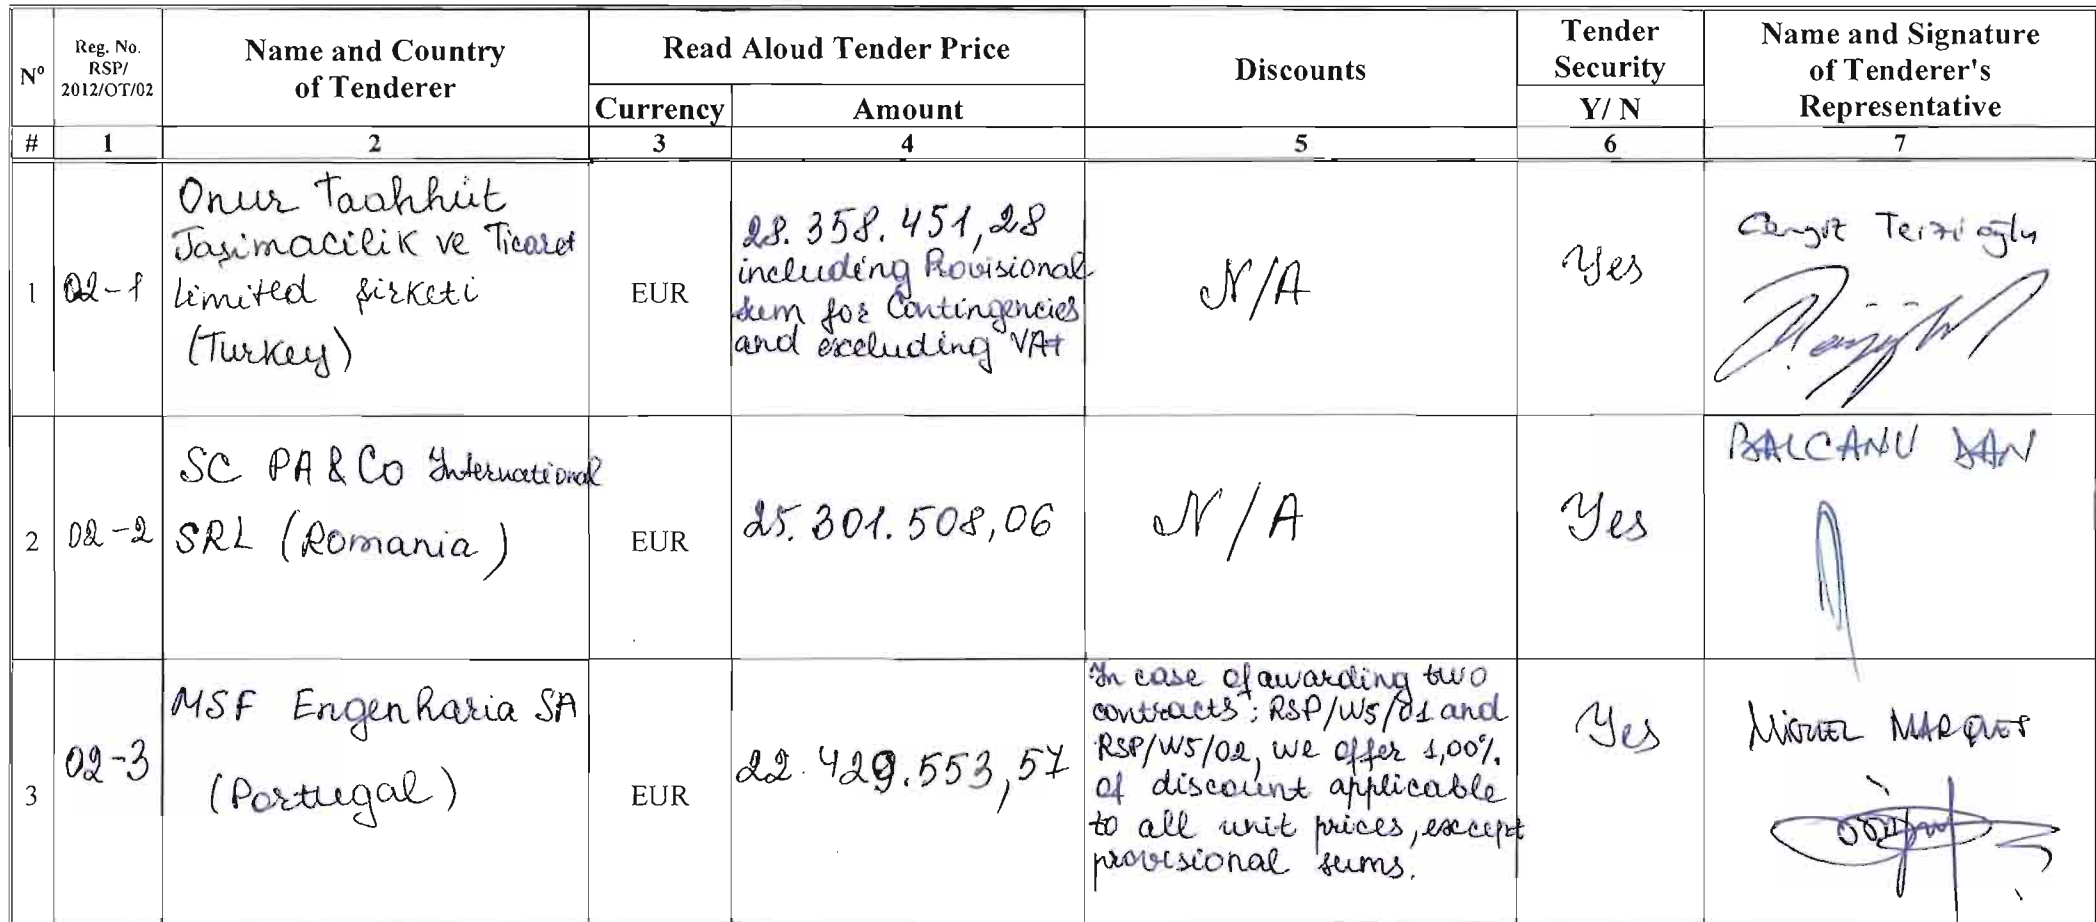 Nº
Reg. No.
RSP/
2012/OT/02
Name and Country
of Tenderer
Read Aloud Tender Price
Currency
Amount
Discounts
Tender
Security
Y/ N
Name and Signature
of Tenderer's
Representative
# 1 2 3 4 5 6 7
1
02-1
Onur Taahhüt
Taşimacilik ve Ticaret
Limited şirketi
(Turkey)
EUR
28.358.451,28
including Provisional
sum for Contingencies
and excluding VAT
N/A
Yes
Cengiz Terzioğlu
2
02-2
SC PA & Co International
SRL (Romania)
EUR
25.301.508,06
N/A
Yes
BALCANU DAN
3
02-3
MSF Engenharia SA
(Portugal)
EUR
22.429.553,57
In case of awarding two
contracts: RSP/W5/01 and
RSP/W5/02, we offer 1,00%
of discount applicable
to all unit prices, except
provisional sums.
Yes
MIGUEL MARQUES